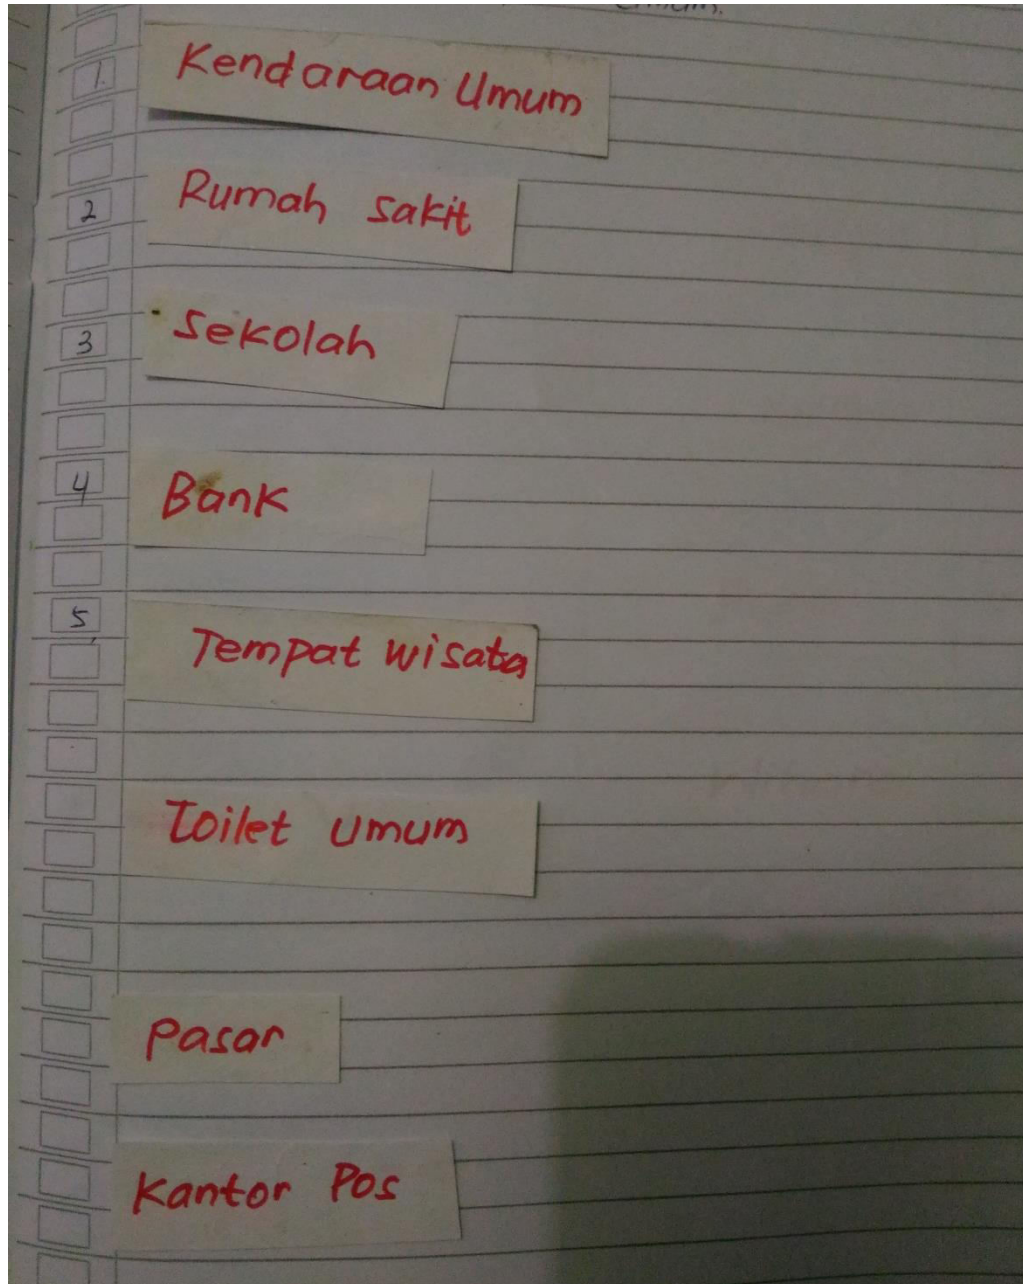 1. Kendaraan Umum
2 Rumah sakit
3 Sekolah
4 Bank
5 Tempat wisata
Toilet umum
Pasar
Kantor Pos